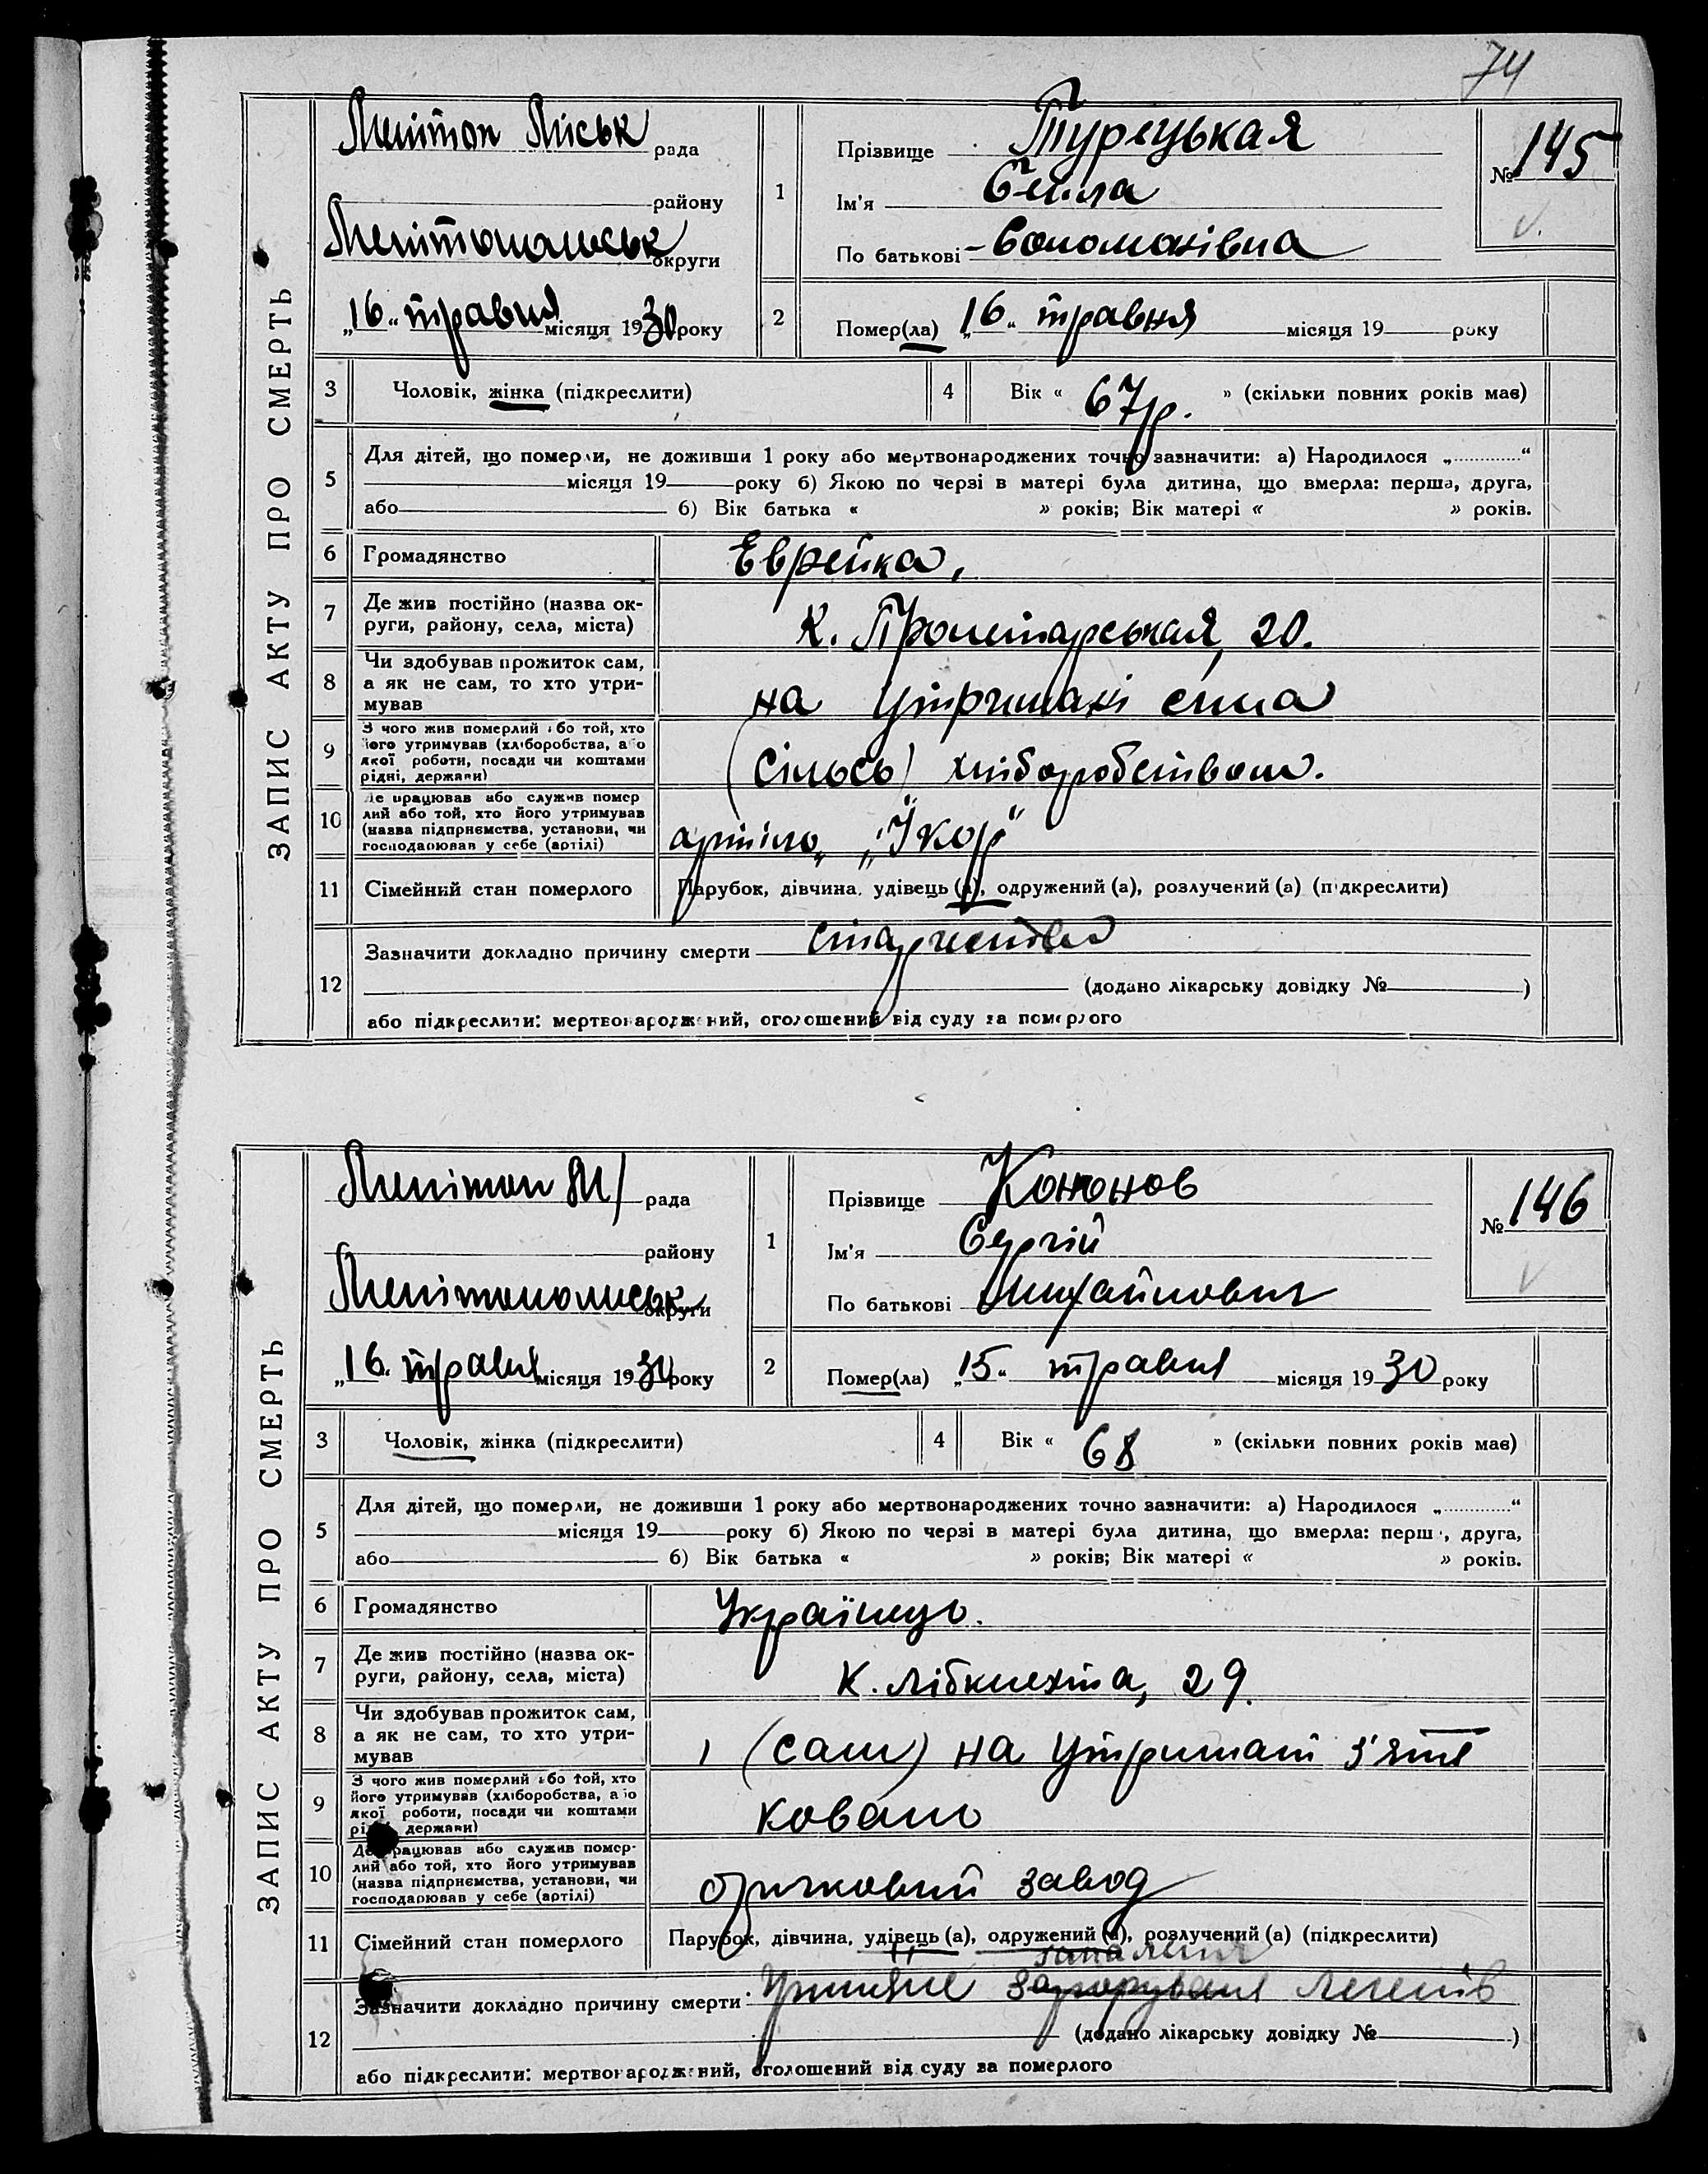 74
ЗАПИС АКТУ ПРО СМЕРТЬ
Меліт Міськ рада
району
Мелітопольськ округи
„16“ травня місяця 1930 року
1
Прізвище Турецькая
Ім'я Бейла
По батькові Соломонівна
№ 145
2
Помер(ла) „16“ травня місяця 19 року
3
Чоловік, жінка (підкреслити)
4
Вік « 67 р. » (скільки повних років має)
5
Для дітей, що померли, не доживши 1 року або мертвонароджених точно зазначити: а) Народилося „ “
місяця 19 року б) Якою по черзі в матері була дитина, що вмерла: перша, друга,
або 6) Вік батька « » років; Вік матері « » років.
6
Громадянство
Еврейка,
7
Де жив постійно (назва ок-
руги, району, села, міста)
К. Пролетарськая, 20.
8
Чи здобував прожиток сам,
а як не сам, то хто утри-
мував
на утримані сина
9
З чого жив померлий або той, хто
його утримував (хліборобства, або
якої роботи, посади чи коштами
рідні, держави)
(сільсь) хліборобством.
10
Де працював або служив помер
лий або той, хто його утримував
(назва підприємства, установи, чи
господарював у себе (артілі)
артіль „Ікор“
11
Сімейний стан померлого
Парубок, дівчина, удівець (а), одружений (а), розлучений (а) (підкреслити)
12
Зазначити докладно причину смерти
(додано лікарську довідку № )
або підкреслити: мертвонароджений, оголошений від суду за померлого
ЗАПИС АКТУ ПРО СМЕРТЬ
Мелітоп М/ рада
району
Мелітопольськ округи
„16“ травня місяця 1930 року
1
Прізвище Кононов
Ім'я Сергій
По батькові Михайлович
№ 146
2
Помер(ла) „15“ травня місяця 1930 року
3
Чоловік, жінка (підкреслити)
4
Вік « 68 » (скільки повних років має)
5
Для дітей, що померли, не доживши 1 року або мертвонароджених точно зазначити: а) Народилося „ “
місяця 19 року б) Якою по черзі в матері була дитина, що вмерла: перш , друга,
або 6) Вік батька « » років; Вік матері « » років.
6
Громадянство
Українець.
7
Де жив постійно (назва ок-
руги, району, села, міста)
К. Лібкнехта, 29.
8
Чи здобував прожиток сам,
а як не сам, то хто утри-
мував
(сам) на утримані з'ятя
9
З чого жив померлий або той, хто
його утримував (хліборобства, або
якої роботи, посади чи коштами
рідні держави)
коваль
10
Де працював або служив помер-
лий або той, хто його утримував
(назва підприємства, установи, чи
господарював у себе (артілі)
бричковий завод
11
Сімейний стан померлого
Парубок, дівчина, удівець (а), одружений (а), розлучений (а) (підкреслити)
12
запалення
Зазначити докладно причину смерти легенів
(додано лікарську довідку № )
або підкреслити: мертвонароджений, оголошений від суду за померлого